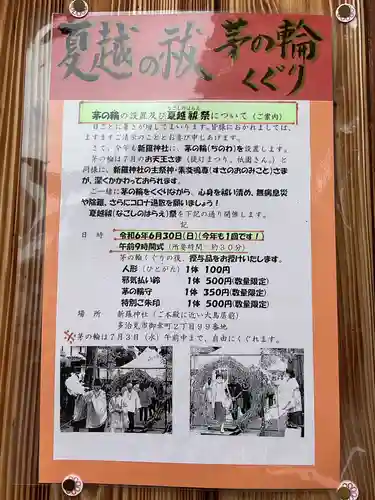 夏越の祓 茅の輪くぐり
茅の輪の設置及び夏越祓祭について（ご案内）
なごしのはらえ
日ごとに暑さが増してまいります。皆様におかれましては、
ますますご清栄のこととお喜び申し上げます。
さて、今年も新羅神社に、茅の輪（ちのわ）を設置します。
茅の輪は７月のお天王さま（提灯まつり、祇園さん。）と
同様に、新羅神社の主祭神・素戔嗚尊（すさのおのみこと）さま
が、深くかかわっておられます。
ご一緒に茅の輪をくぐりながら、心身を祓い清め、無病息災
や除難、さらにコロナ退散を願いましょう！
夏越祓（なごしのはらえ）祭を下記の通り開催します。
記
日 時 令和6年6月30日(日)(今年も1回です！)
午前9時間式（所要時間 約３０分）
茅の輪くぐりの後、授与品をお授けいたします。
人形（ひとがた）1体 100円
邪気払い鈴 1体 500円(数量限定)
茅の輪守 1体 350円(数量限定)
特別ご朱印 1体 500円(数量限定)
場 所 新羅神社（ご本殿に近い大鳥居前）
多治見市御幸町２丁目９９番地
※茅の輪は７月３日（水）午前中まで、自由にくぐれます。